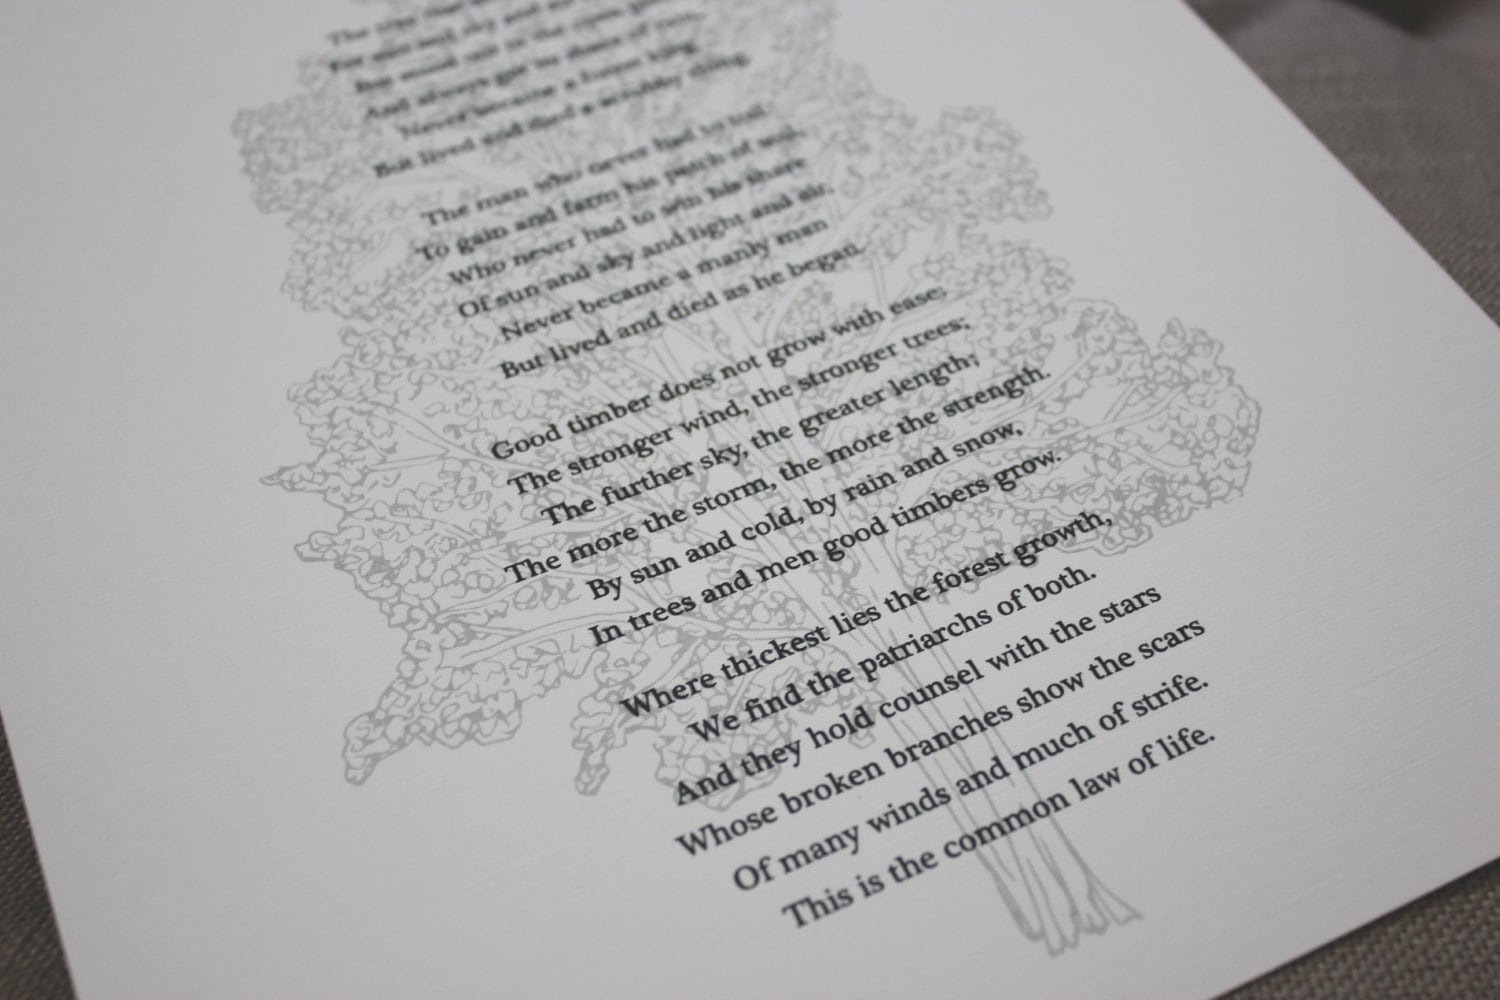 The tree that
For sun and sky and air
But stood out in the open
And always got its share of rain,
Never became a forest king
But lived and died a scrubby thing.
The man who never had to toil
To gain and farm his patch of soil,
Who never had to win his share
Of sun and sky and light and air,
Never became a manly man
But lived and died as he began.
Good timber does not grow with ease;
The stronger wind, the stronger trees;
The further sky, the greater length;
The more the storm, the more the strength.
By sun and cold, by rain and snow,
In trees and men good timbers grow.
Where thickest lies the forest growth,
We find the patriarchs of both.
And they hold counsel with the stars
Whose broken branches show the scars
Of many winds and much of strife.
This is the common law of life.